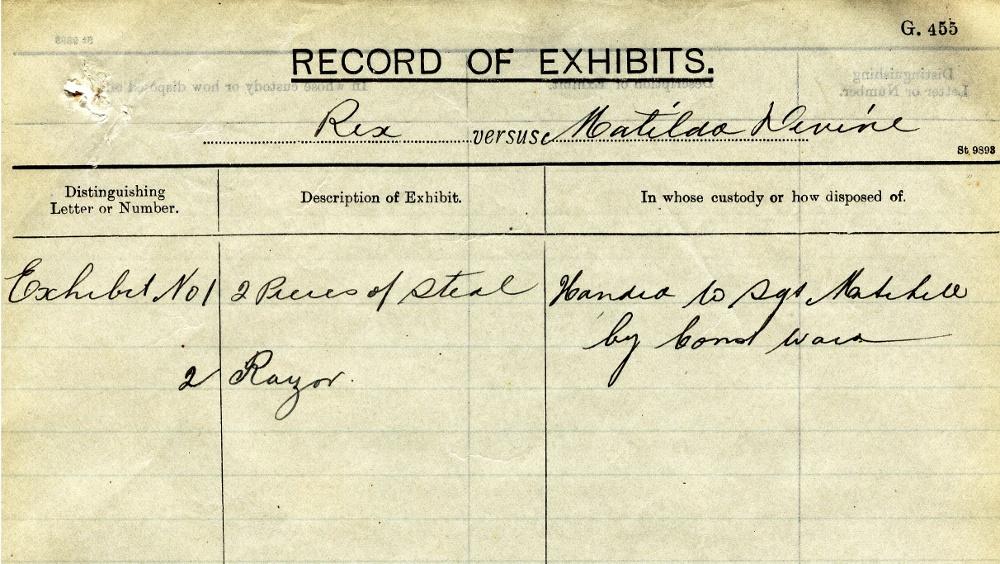 G. 455
RECORD OF EXHIBITS.
Rex versus Matilda Devine
St 9893
Distinguishing Letter or Number.
Description of Exhibit.
In whose custody or how disposed of.
Exhibit No 1 2 Pieces of Steal Handed to Sgt Mitchell
by Const Ward
2 Razor.